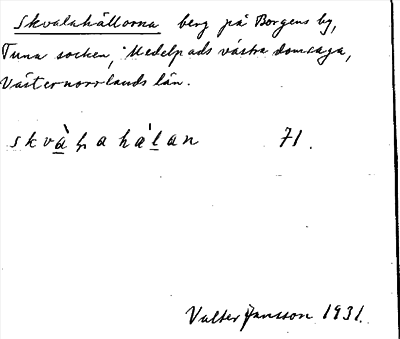 Skvalahällorna berg på Borgens by,
Tuna socken, Medelpads västra domsaga,
Västernorrlands län.
skvàɧahàlan 71.
Valter Jansson 1931.